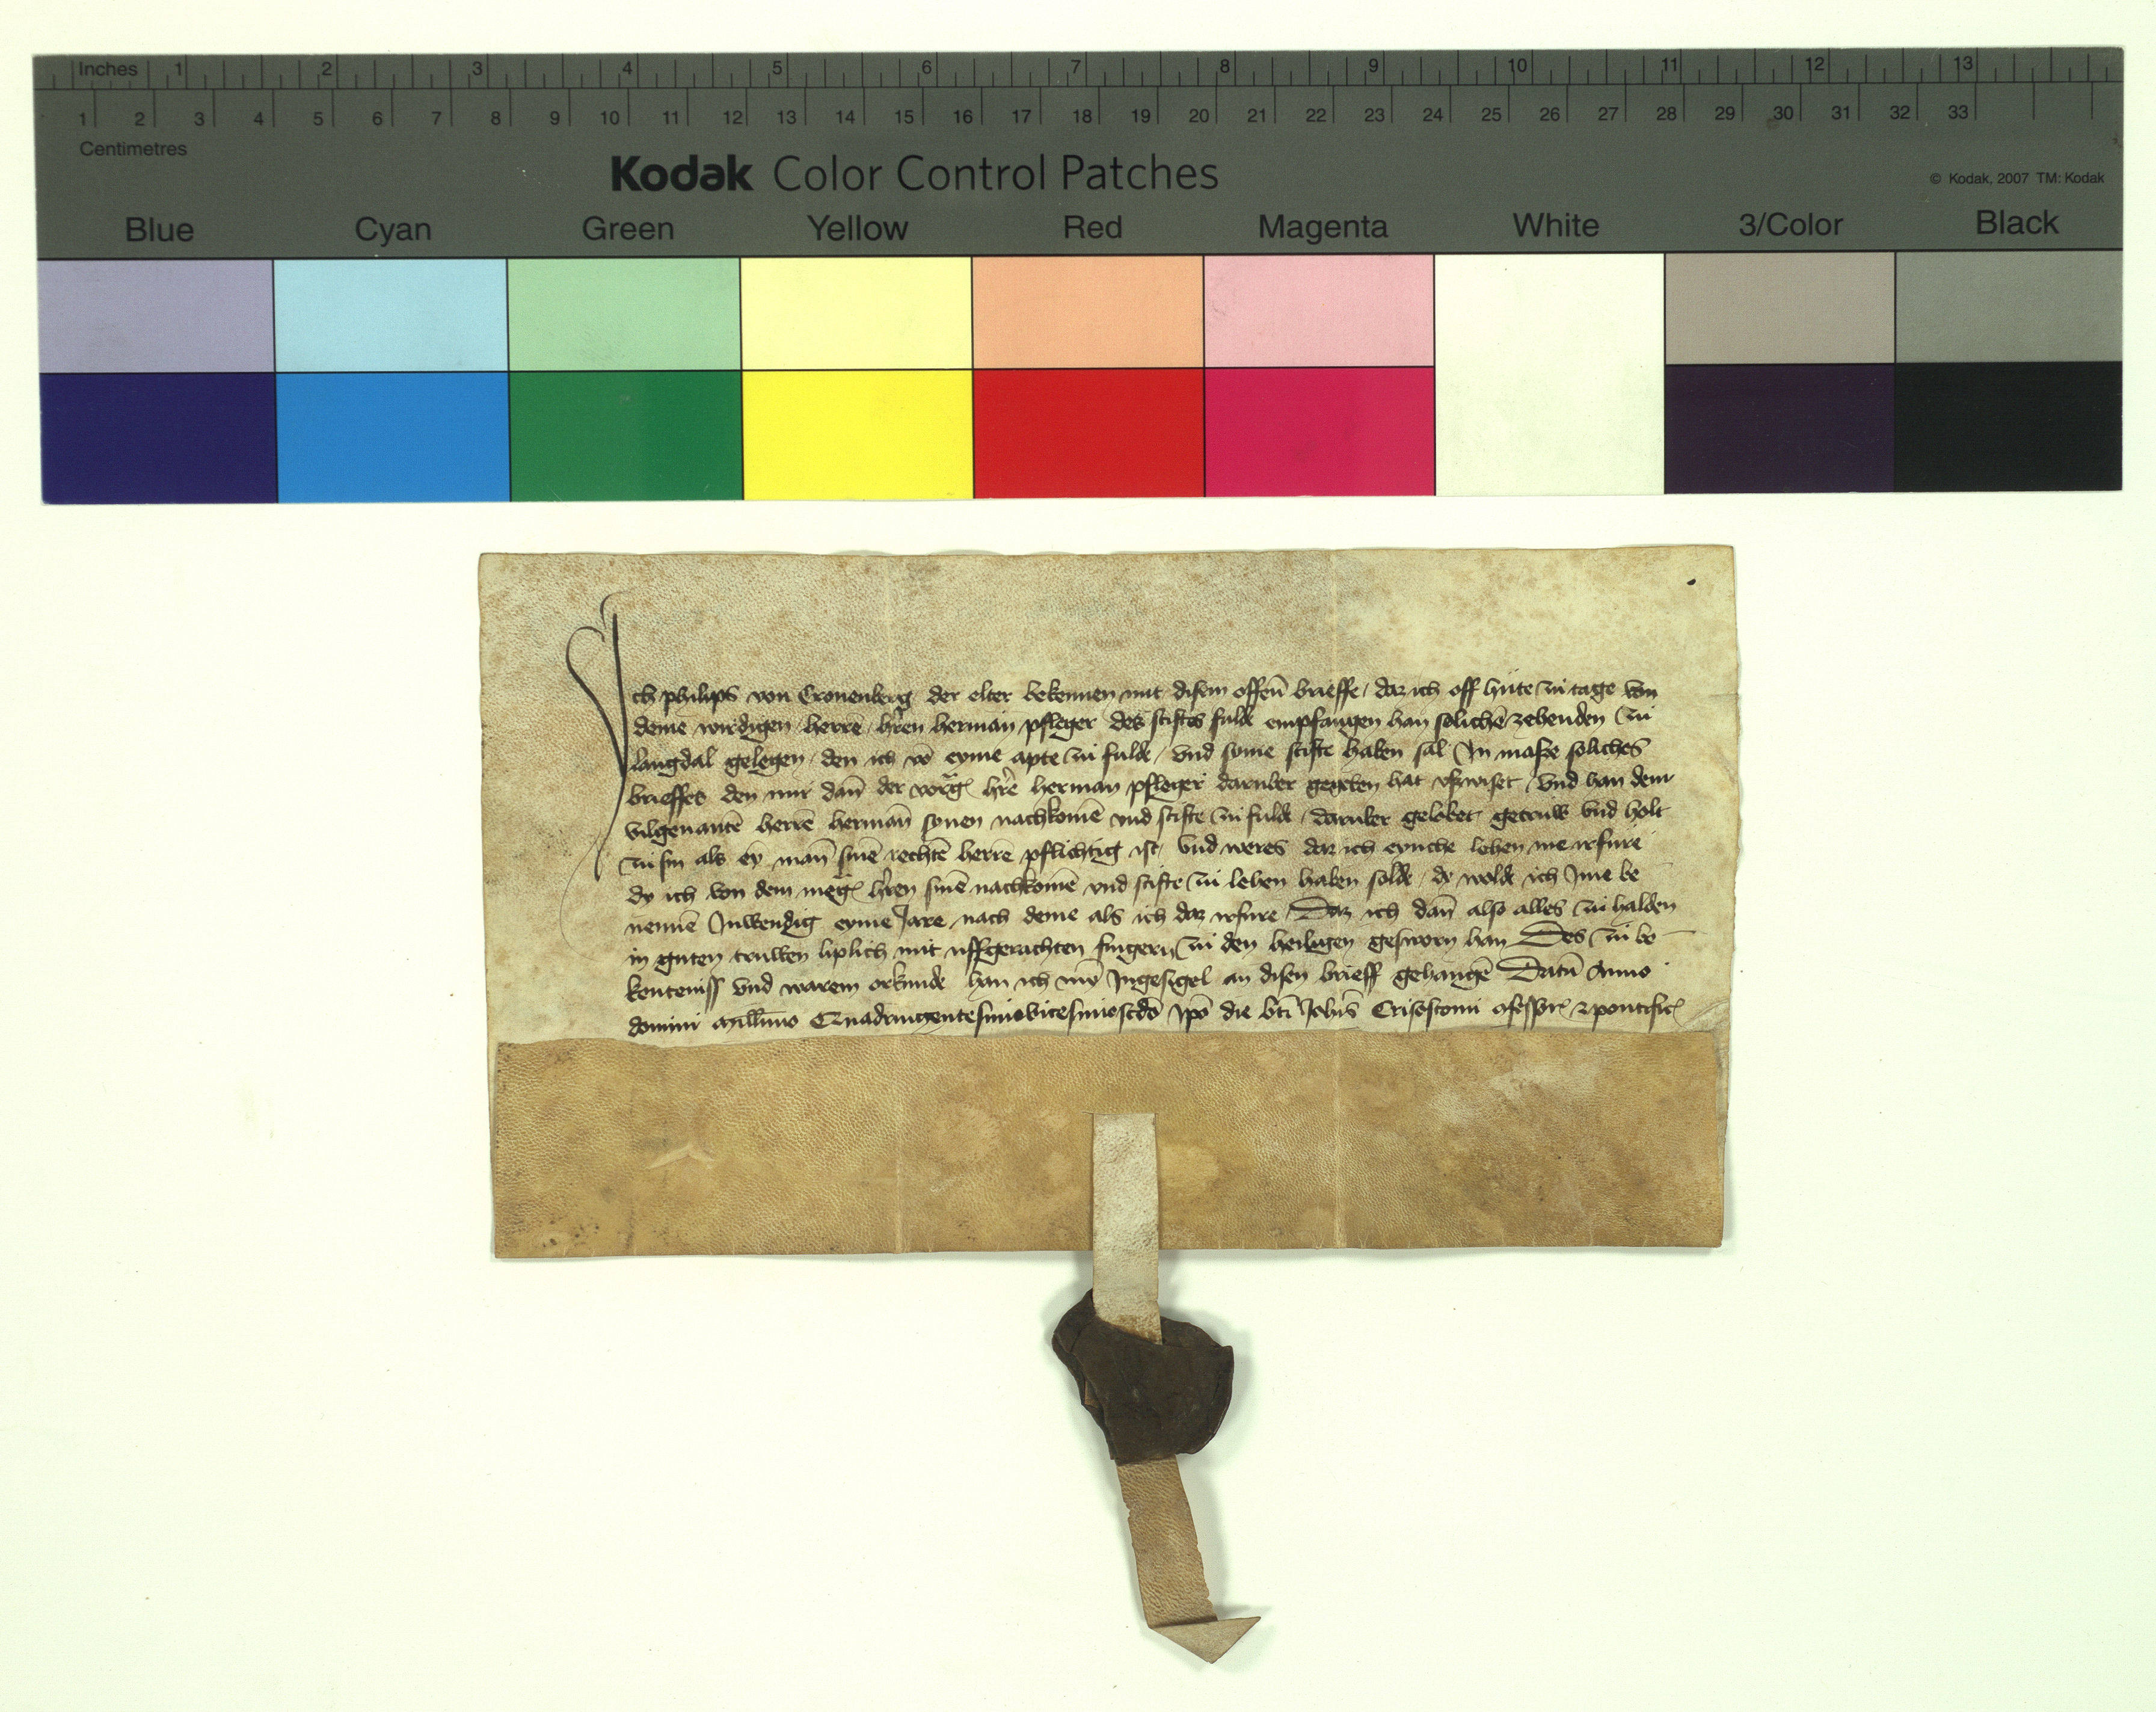 Inches 1 2 3 4 5 6 7 8 9 10 11 12 13
1 2 3 4 5 6 7 8 9 10 11 12 13 14 15 16 17 18 19 20 21 22 23 24 25 26 27 28 29 30 31 32 33
Centimetres
Kodak Color Control Patches
© Kodak, 2007 TM: Kodak
Blue Cyan Green Yellow Red Magenta White 3/Color Black
Ich philips von Cronenberg der elter bekennen mit disem offen̄ brieffe / daz ich off hute zu tage von
deme wirdigen herrē hr̄en herman pfleger des stiftes fulde empfangen han solichē zehenden zu
langdal gelegen / den ich vō eyme apte zu fulde / vnd syme stifte haben sal In maße soliches
brieffes den mir dan̄ der hr̄e herman pfleger daruber gegeben hat vßwiset / Vnd han dem
vilgenantē herrē herman̄ synen nachkomē vnd stifte zu fulde / daruber gelobet getruw vnd holt
zu sin als eȳ man̄ sinē rechtē herrē pflichtig ist / Vnd weres daz ich eynche lehen me irfure
dy ich von dem hr̄en sinē nachkomē vnd stifte zu lehen haben solde / dy wolde ich Ime be
nennē Inwendig eyme Jare nach deme als ich daz irfure / Daz ich dan̄ also alles zu halden
in guten truwen liplich mit uffgerachten fingern zu den heiligen gesworn han Des zu be
kenteniss vnd warem orkunde han ich mȳ Ingesigel an disen brieff gehangē Datū Anno
domini millīmo Quadringentesimovicesimoscdō ipō die btī Johīs Crisostomi